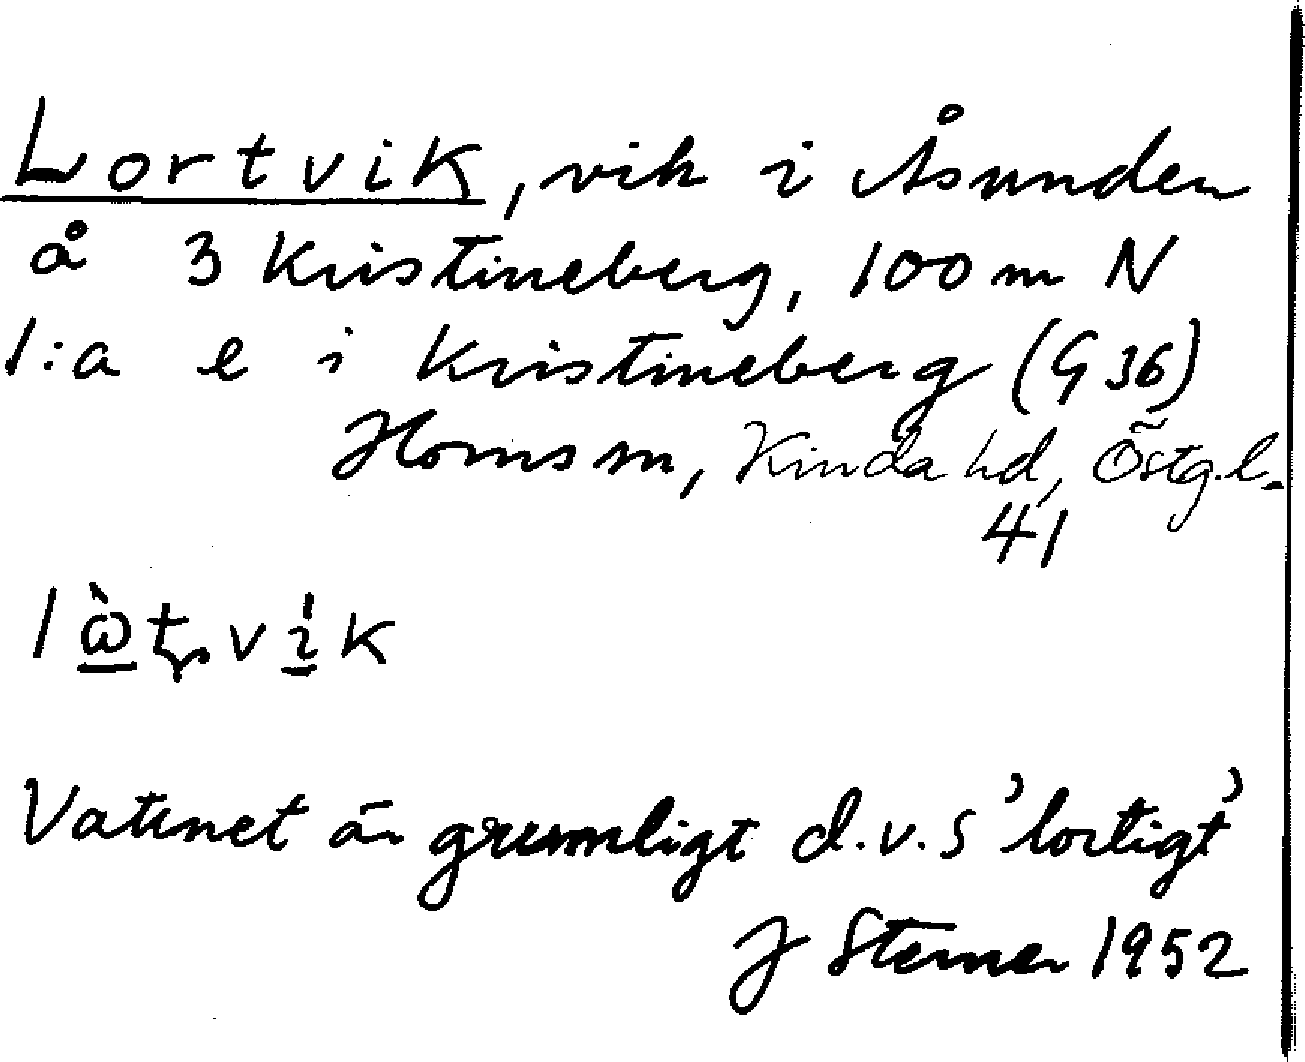 Lortvik, vik i Åsunden
å 3 Kristineberg, 100 m N
1:a e i Kristineberg (G 36)
Horns sn, Kinda hd, Östg.l.
41
lὼtvik
Vattnet är grumligt d.v.s 'lortigt'
J Sterner 1952